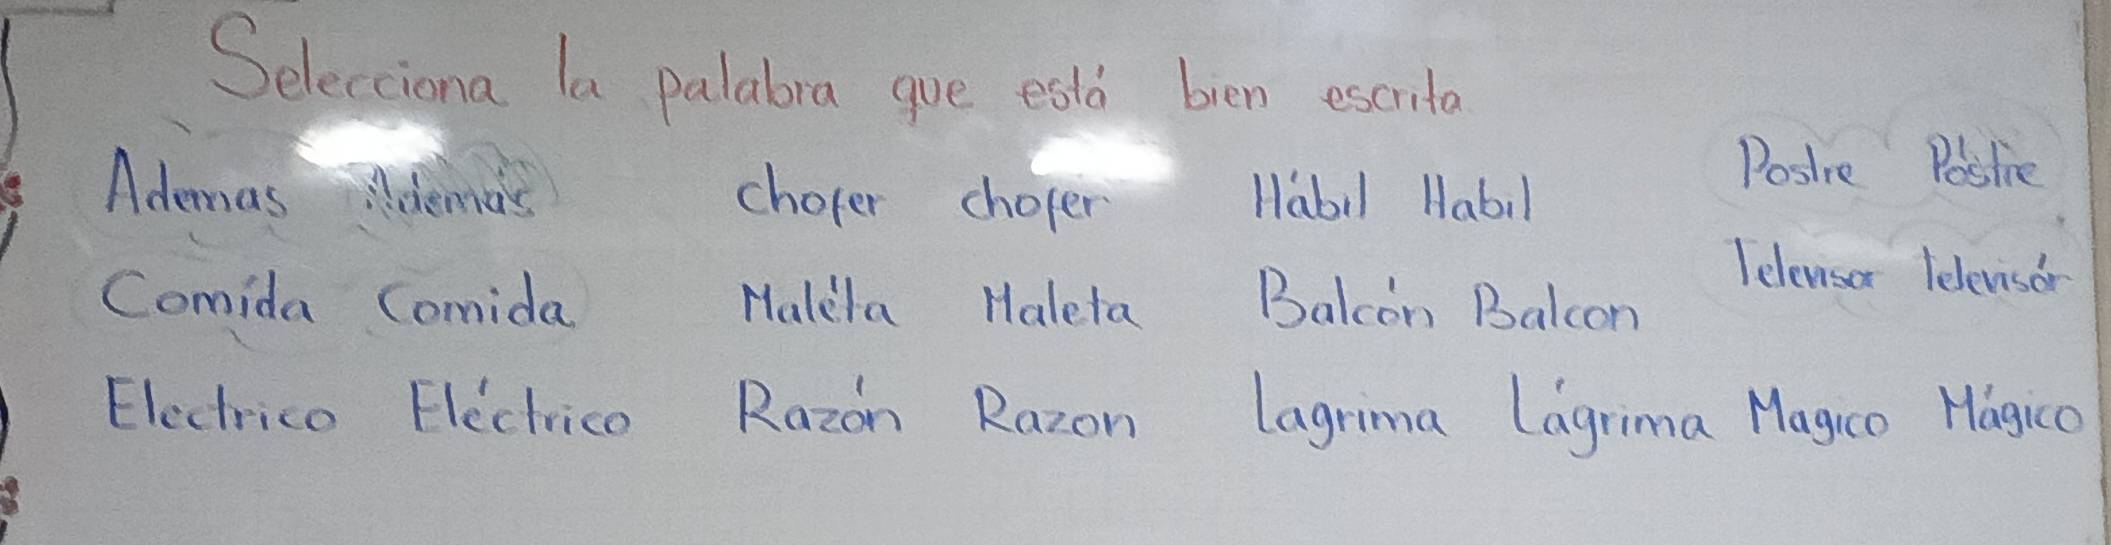 Selecciona la palabra que está bien escrita
Ademas Además chofer chofer Hábil Habil Postre Póstre
Comída Comida Maléta Maleta Balcón Balcon Televisor Televisór
Electrico Eléctrico Razón Razon Lagrima Lágrima Magico Mágico